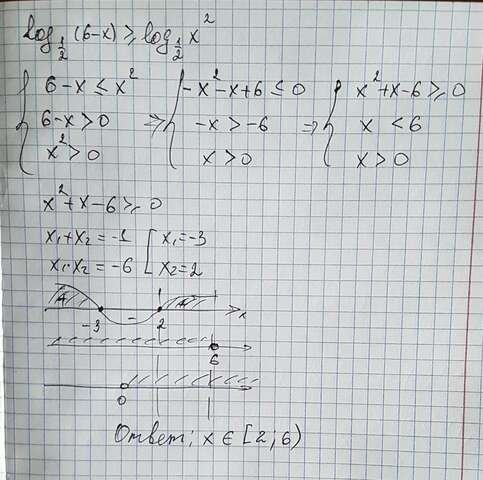 log_{1/2} (6-x) ⩾ log_{1/2} x²
{ 6-x ≤ x² ⇒ { -x²-x+6 ≤ 0 ⇒ { x²+x-6 ⩾ 0
6-x>0 -x>-6 x<6
x²>0 x>0 x>0
x²+x-6 ⩾ 0
x₁+x₂=-1 [ x₁=-3
x₁·x₂=-6 [ x₂=2
+ - + x
-3 2
6
0
Ответ: x ∈ [2; 6)